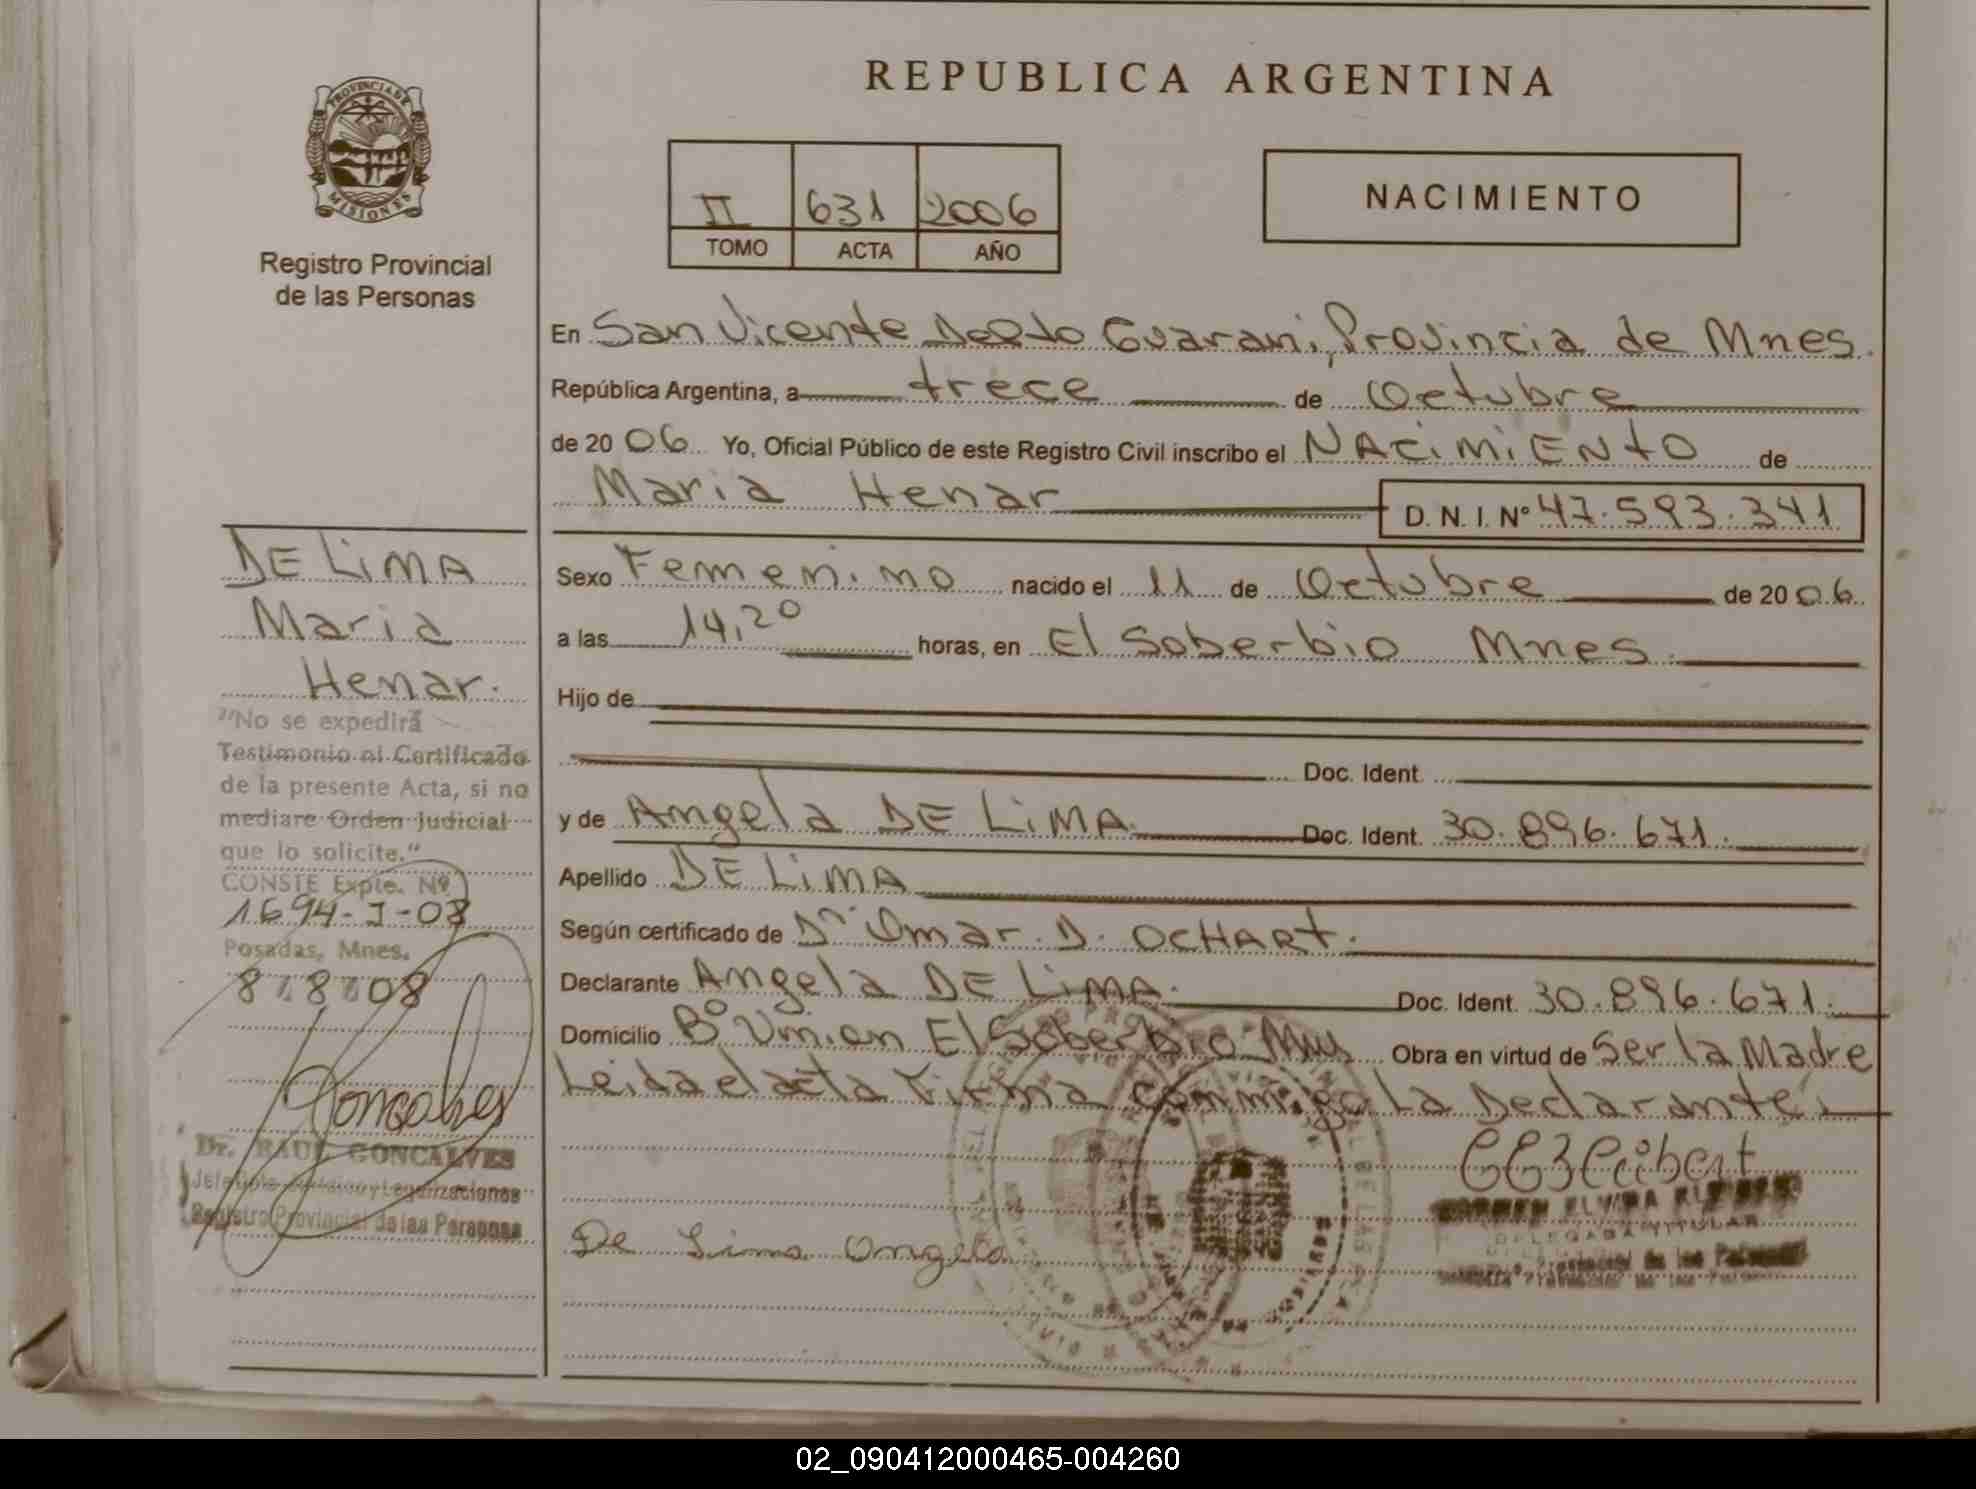 REPUBLICA ARGENTINA
PROVINCIA DE
MISIONES
Registro Provincial
de las Personas
II 631 2006
TOMO ACTA AÑO
NACIMIENTO
En San Vicente Depto Guarani, Provincia de Mnes.
República Argentina, a trece de Octubre
de 20 06 Yo, Oficial Público de este Registro Civil inscribo el NACIMIENTO de
Maria Henar D. N. I. Nº 47.593.341
Sexo Femenino nacido el 11 de Octubre de 20 06
a las 14,20 horas, en El Soberbio Mnes.
Hijo de
Doc. Ident.
y de Angela DE LIMA Doc. Ident. 30.896.671.
Apellido DE LIMA
Según certificado de Dr Omar D. OCHART.
Declarante Angela DE LIMA. Doc. Ident. 30.896.671.
Domicilio Bº Union El Soberbio Obra en virtud de Ser la Madre
Leida el acta Firma conmigo La Declarante
De Lima Angela
DE LIMA
Maria
Henar.
"No se expedirá
Testimonio ni Certificado
de la presente Acta, si no
mediare Orden Judicial
que lo solicite."
CONSTE Expte. Nº
1694-J-08
Posadas, Mnes.
8 8 08
Goncalves
Dr. RAUL GONCALVES
Jefe Dpto. Jurídico y Legalizaciones
Registro Provincial de las Personas
ELVIRA
DELEGADA TITULAR
Provincial de las Personas
02_090412000465-004260